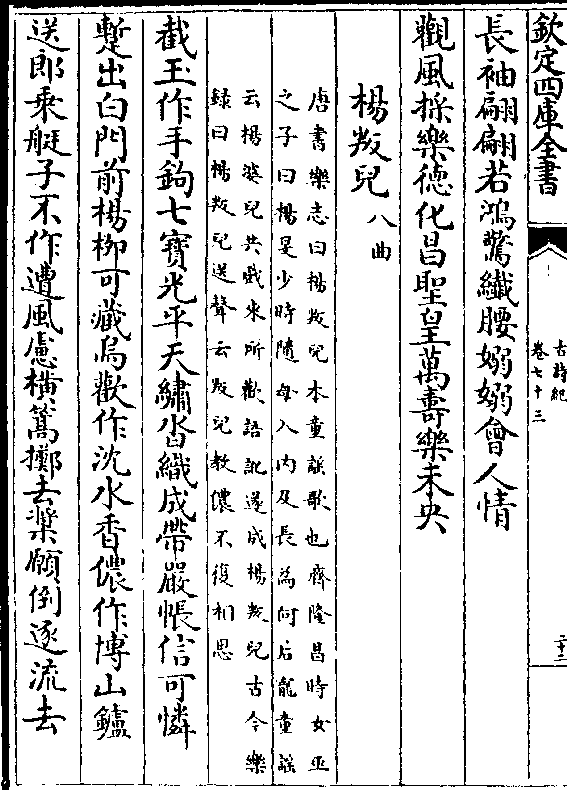 欽定四庫全書
古詩紀
卷七十三
二十二
長袖翩翩若鴻驚纖腰嫋嫋會人情
觀風採樂德化昌聖皇萬壽樂未央
楊叛兒八曲
唐書樂志曰楊叛兒本童謠歌也齊隆昌時女巫
之子曰楊旻少時隨母入内及長為何后寵童謠
云楊婆兒共戲來所歡語訛遂成楊叛兒古今樂
録曰楊叛兒送聲云叛兒教儂不復相思
截玉作手鉤七寶光平天繡沓織成帶嚴帳信可憐
蹔出白門前楊柳可藏烏歡作沈水香儂作博山鑪
送郎乘艇子不作遭風慮橫篙擲去槳願倒逐流去